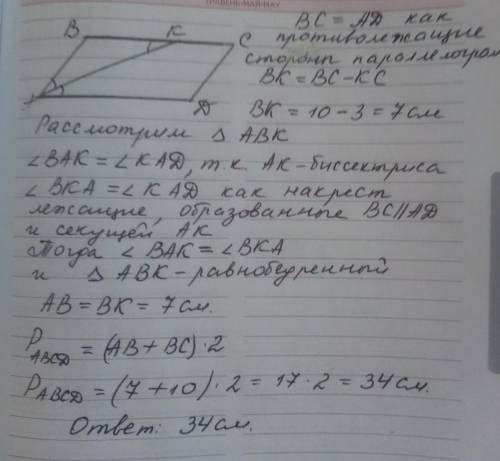 ТРАВЕНЬ-МАЙ-MAY
B K C
D
BC = AD как
противолежащие
стороны параллелограм
BK = BC-KC
BK = 10 - 3 = 7 см
Рассмотрим △ ABK
∠BAK = ∠KAD, т.к. AK-биссектриса
∠BKA = ∠KAD как накрест
лежащие, образованные BC∥AD
и секущей AK
Тогда ∠BAK = ∠BKA
и △ ABK-равнобедренный
AB = BK = 7 см.
P ABCD = (AB + BC)·2
P ABCD = (7 + 10)·2 = 17·2 = 34 см.
Ответ: 34 см.